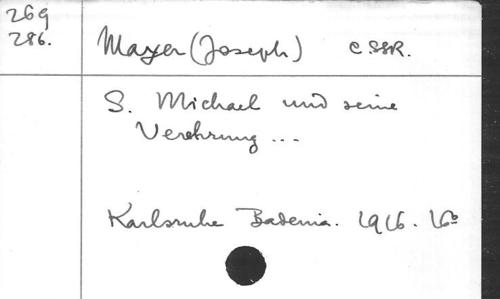 269
286.
Mayer (Joseph) C.SSR.
S. Michael und seine
Verehrung ...
Karlsruhe Badenia. 1916. 16°